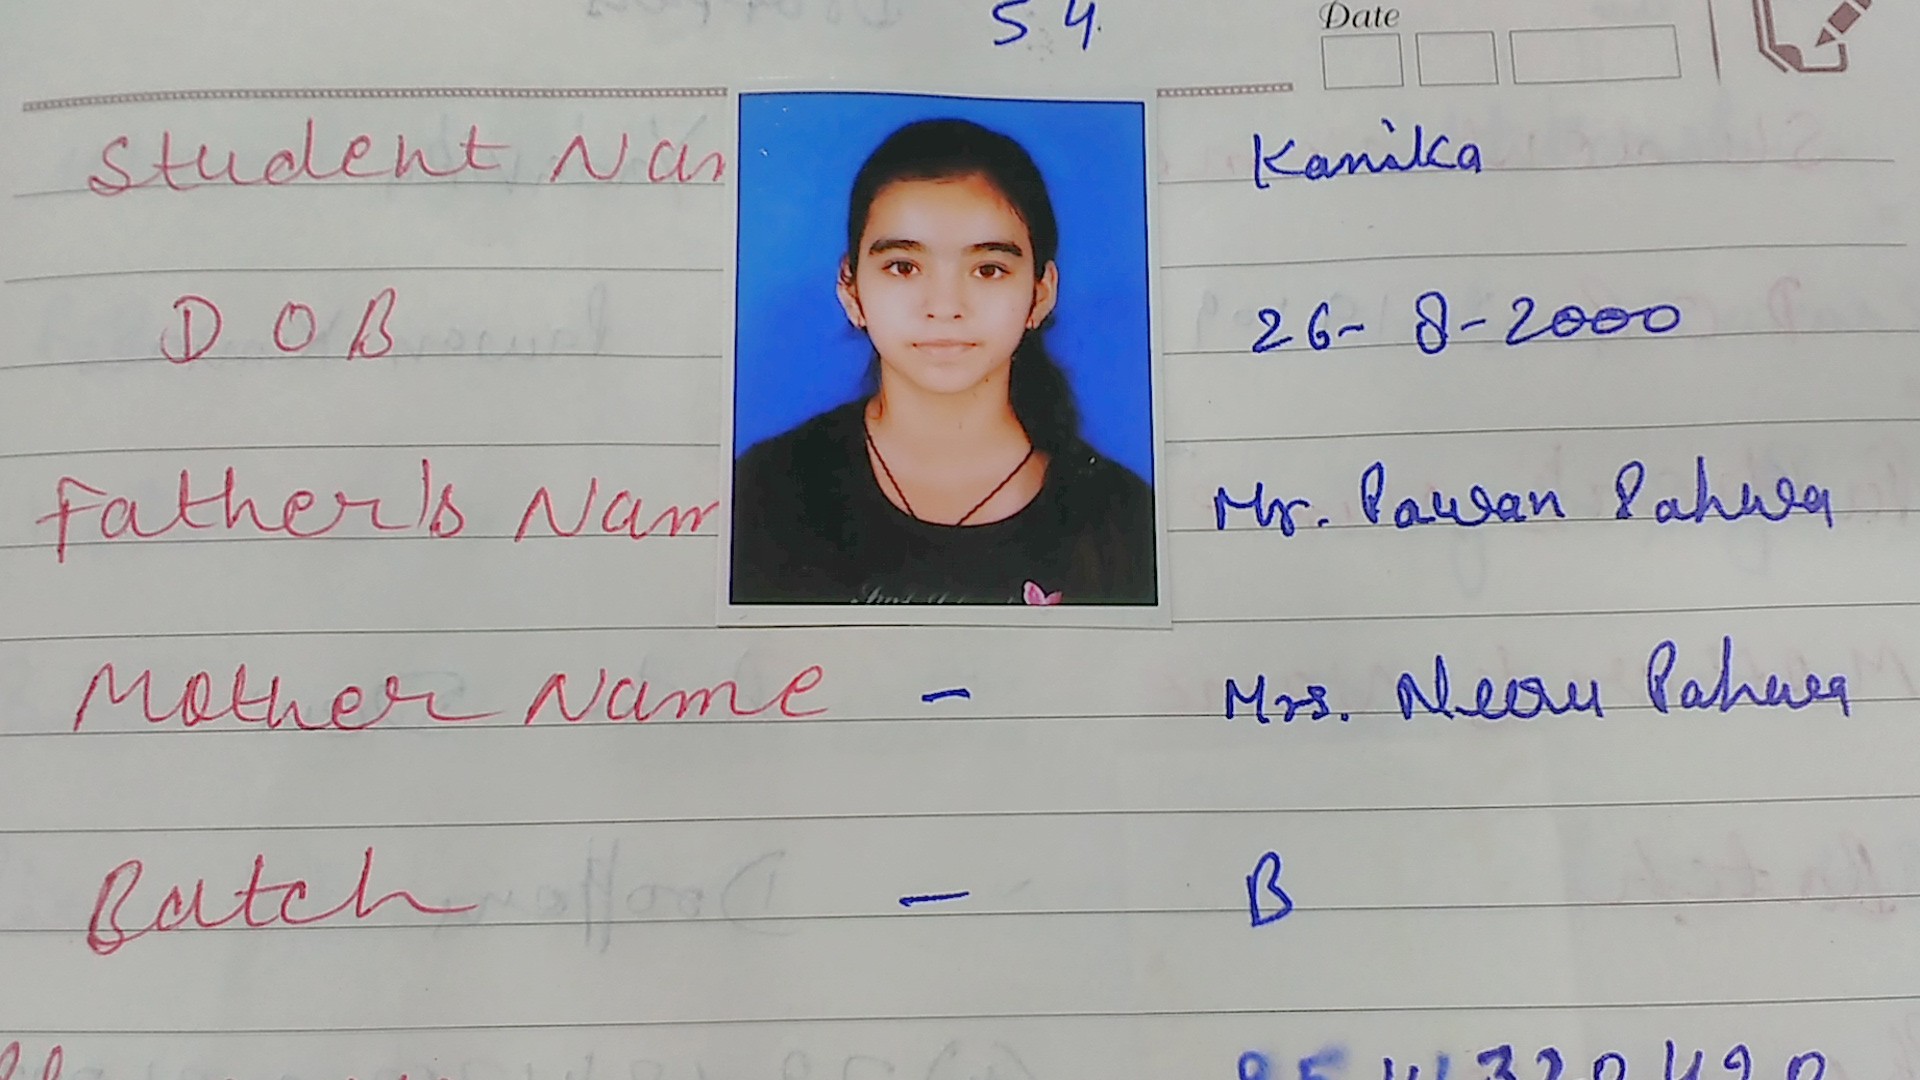 54.
Date
Student Nam Kanika
DOB 26-8-2000
Father's Nam Mr. Pawan Pahwa
Mother Name - Mrs. Neeru Pahwa
Batch - B